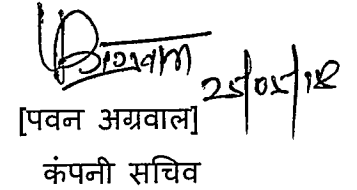 25/05/18
[पवन अग्रवाल]
कंपनी सचिव